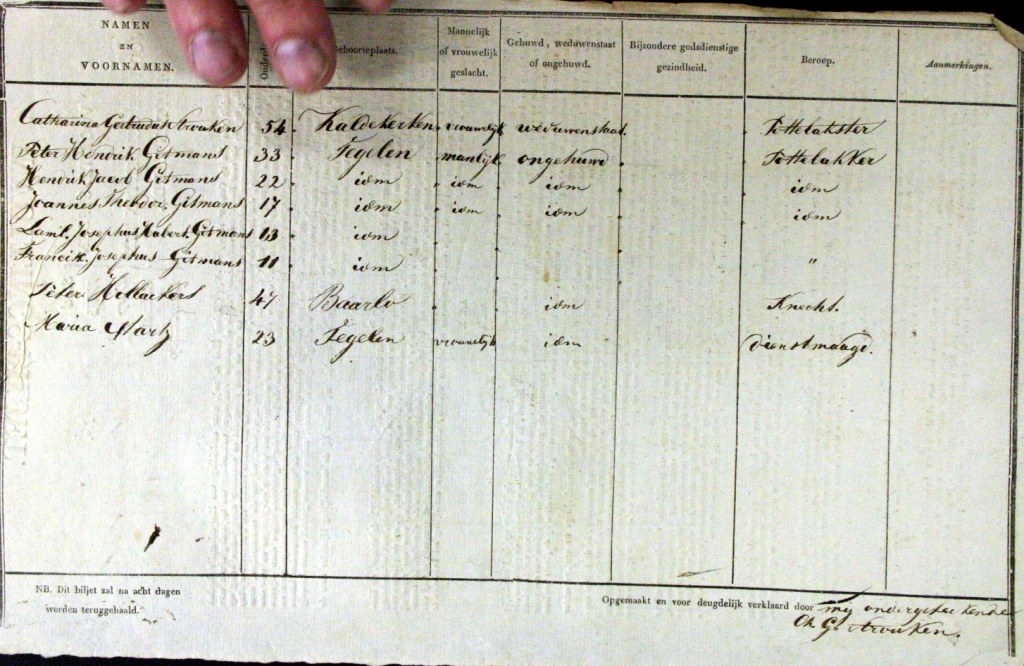 NAMEN EN VOORNAMEN. Ouderd Geboorteplaats. Mannelijk of vrouwelijk geslacht. Gehuwd, weduwenstaat of ongehuwd. Bijzondere godsdienstige gezindheid. Beroep. Aanmerkingen.
Catharina Gertrudis Strouken 54 Kaldekerken vrouwelijk weduwenstaat. Pottebakster
Peter Hendrik Gitmans 33 Tegelen manlijk ongehuwd Pottebakker
Hendrik Jacob Gitmans 22 idm idm idm idm
Joannes Theodor. Gitmans 17 idm idm idm idm
Lamb. Josephus Hubert. Gitmans 13 idm
Francisk. Josephus Gitmans 11 idm "
Peter 47 Baarlo idm Knecht.
Maria 23 Tegelen vrouwelijk idm dienstmaagd.
NB. Dit biljet zal na acht dagen
worden teruggehaald.
Opgemaakt en voor deugdelijk verklaard door my ondergeteekende
C. G. Strouken.